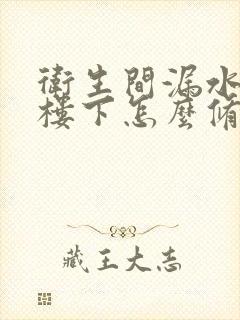 衛生間漏水
樓下怎麼脩
藏王大志